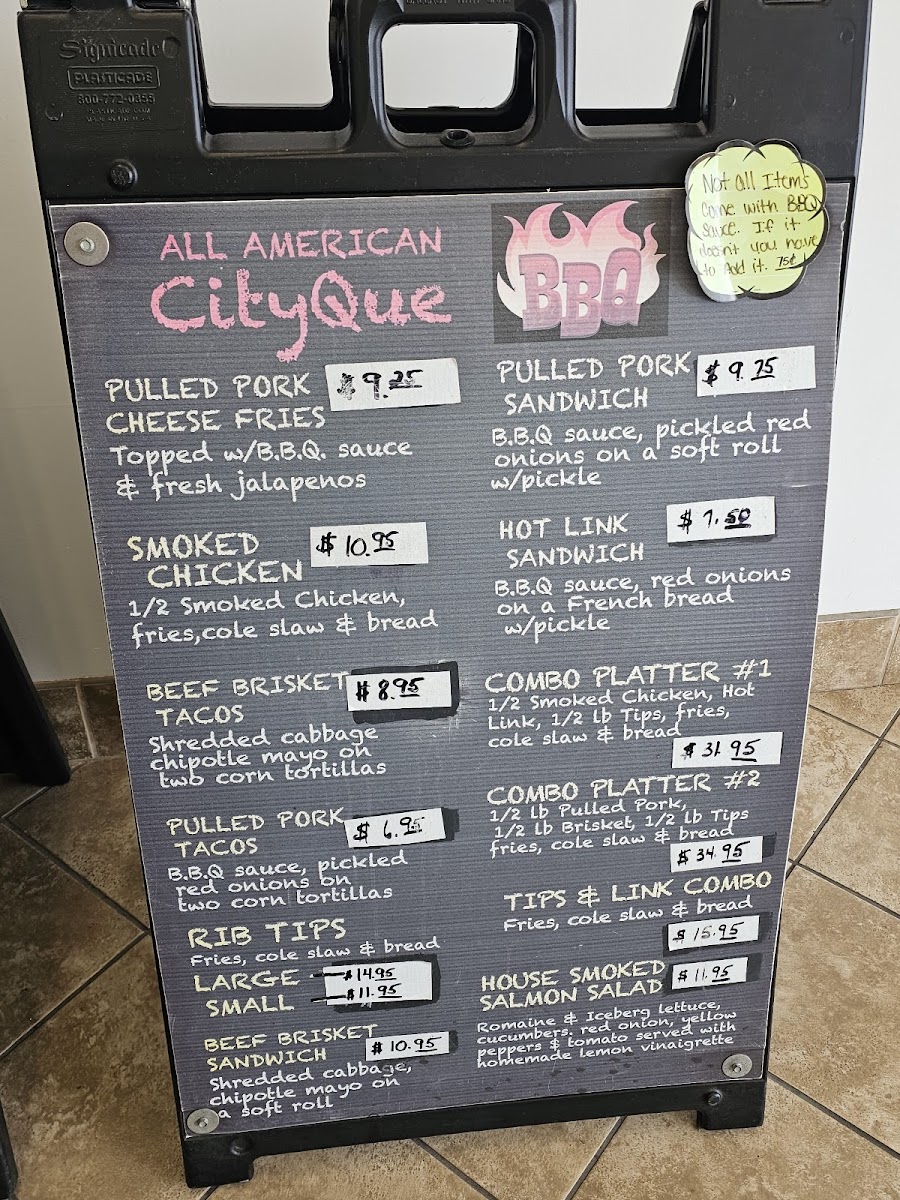 Signicade
PLASTICADE
800-772-0355
PLASTICADE.COM
MADE IN THE U.S.A.
Not all Items
come with BBQ
sauce. If it
doesn't you have
to Add it. 75¢
ALL AMERICAN
CityQue
BBQ
PULLED PORK $9.25
CHEESE FRIES
Topped w/B.B.Q. sauce
& fresh jalapenos
SMOKED $10.95
CHICKEN
1/2 Smoked Chicken,
fries,cole slaw & bread
BEEF BRISKET $8.95
TACOS
Shredded cabbage
chipotle mayo on
two corn tortillas
PULLED PORK $6.95
TACOS
B.B.Q sauce, pickled
red onions on
two corn tortillas
RIB TIPS
Fries, cole slaw & bread
LARGE $14.95
SMALL $11.95
BEEF BRISKET $10.95
SANDWICH
Shredded cabbage,
chipotle mayo on
a soft roll
PULLED PORK $9.25
SANDWICH
B.B.Q sauce, pickled red
onions on a soft roll
w/pickle
HOT LINK $7.50
SANDWICH
B.B.Q sauce, red onions
on a French bread
w/pickle
COMBO PLATTER #1
1/2 Smoked Chicken, Hot
Link, 1/2 lb Tips, fries,
cole slaw & bread
$31.95
COMBO PLATTER #2
1/2 lb Pulled Pork,
1/2 lb Brisket, 1/2 lb Tips
fries, cole slaw & bread
$34.95
TIPS & LINK COMBO
Fries, cole slaw & bread
$15.95
HOUSE SMOKED $11.95
SALMON SALAD
Romaine & Iceberg lettuce,
cucumbers, red onion, yellow
peppers & tomato served with
homemade lemon vinaigrette